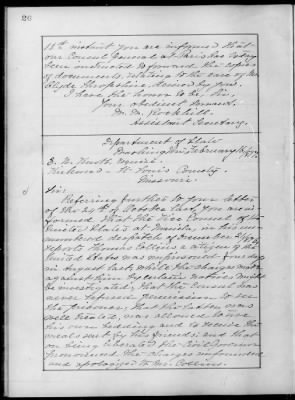 26
16th instant you are informed that
our Consul General at Paris has today
been instructed to forward the copies
of documents, relating to the case of Mr.
Clyde Shropshire, desired by you.
I have the honor to be, Sir,
Your obedient servant,
W. W. Rockhill.
Assistant Secretary.
Department of State
Washington, February
Esquire
Kirkwood St. Louis County
Missouri
Sir:
Referring further to your letter
of the 24th of October last, you are in-
formed that the Vice Consul of the
United States at Manila, in his un-
numbered despatch of December
reports Thomas Collins a citizen of the
United States was imprisoned four days
in August last, while the charges made
against him by certain Spaniards could
be investigated; that the Consul was
never refused permission to see
the prisoner; that the latter was
well treated, was allowed to have
his own bedding and to receive his
meals sent by his friends; and that
on being liberated the Civil Governor
pronounced the charges unfounded
and apologized to Mr. Collins.